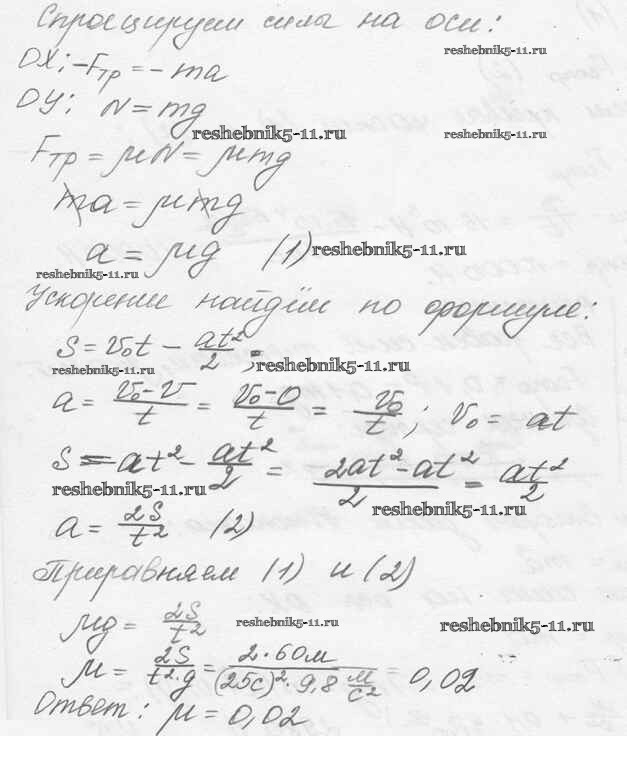 Спроецируем силы на оси:
reshebnik5-11.ru
OX: -Fтр = - ma
OY: N = mg
reshebnik5-11.ru
reshebnik5-11.ru
Fтр = μN = μmg
ma = μmg
a = μg (1)
reshebnik5-11.ru
reshebnik5-11.ru
Ускорение найдём по формуле:
S = v₀t - at²/2;
reshebnik5-11.ru
reshebnik5-11.ru
a = v₀-v/t = v₀-0/t = v₀/t; v₀ = at
S = at² - at²/2 = 2at²-at²/2 = at²/2
reshebnik5-11.ru
reshebnik5-11.ru
a = 2S/t² (2)
Приравняем (1) и (2)
μg = 2S/t²
reshebnik5-11.ru
reshebnik5-11.ru
μ = 2S/t²·g = 2·60м/(25с)²·9,8 м/с² = 0,02
Ответ: μ = 0,02